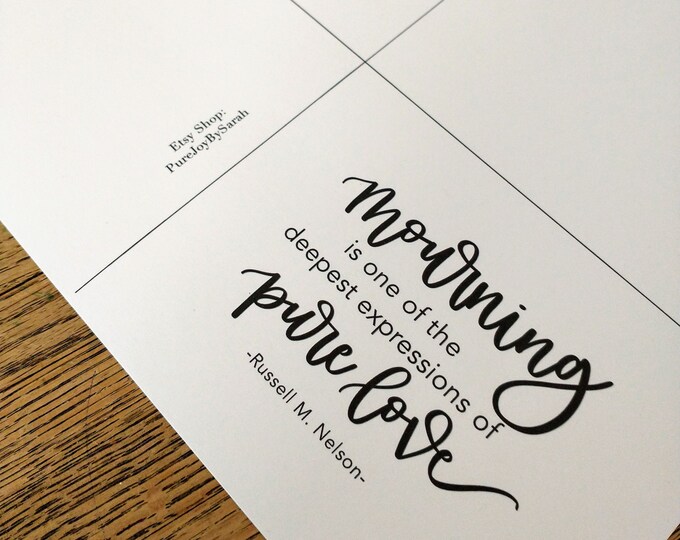 Etsy Shop:
PureJoyBySarah
mourning
is one of the
deepest expressions of
pure love
-Russell M. Nelson-